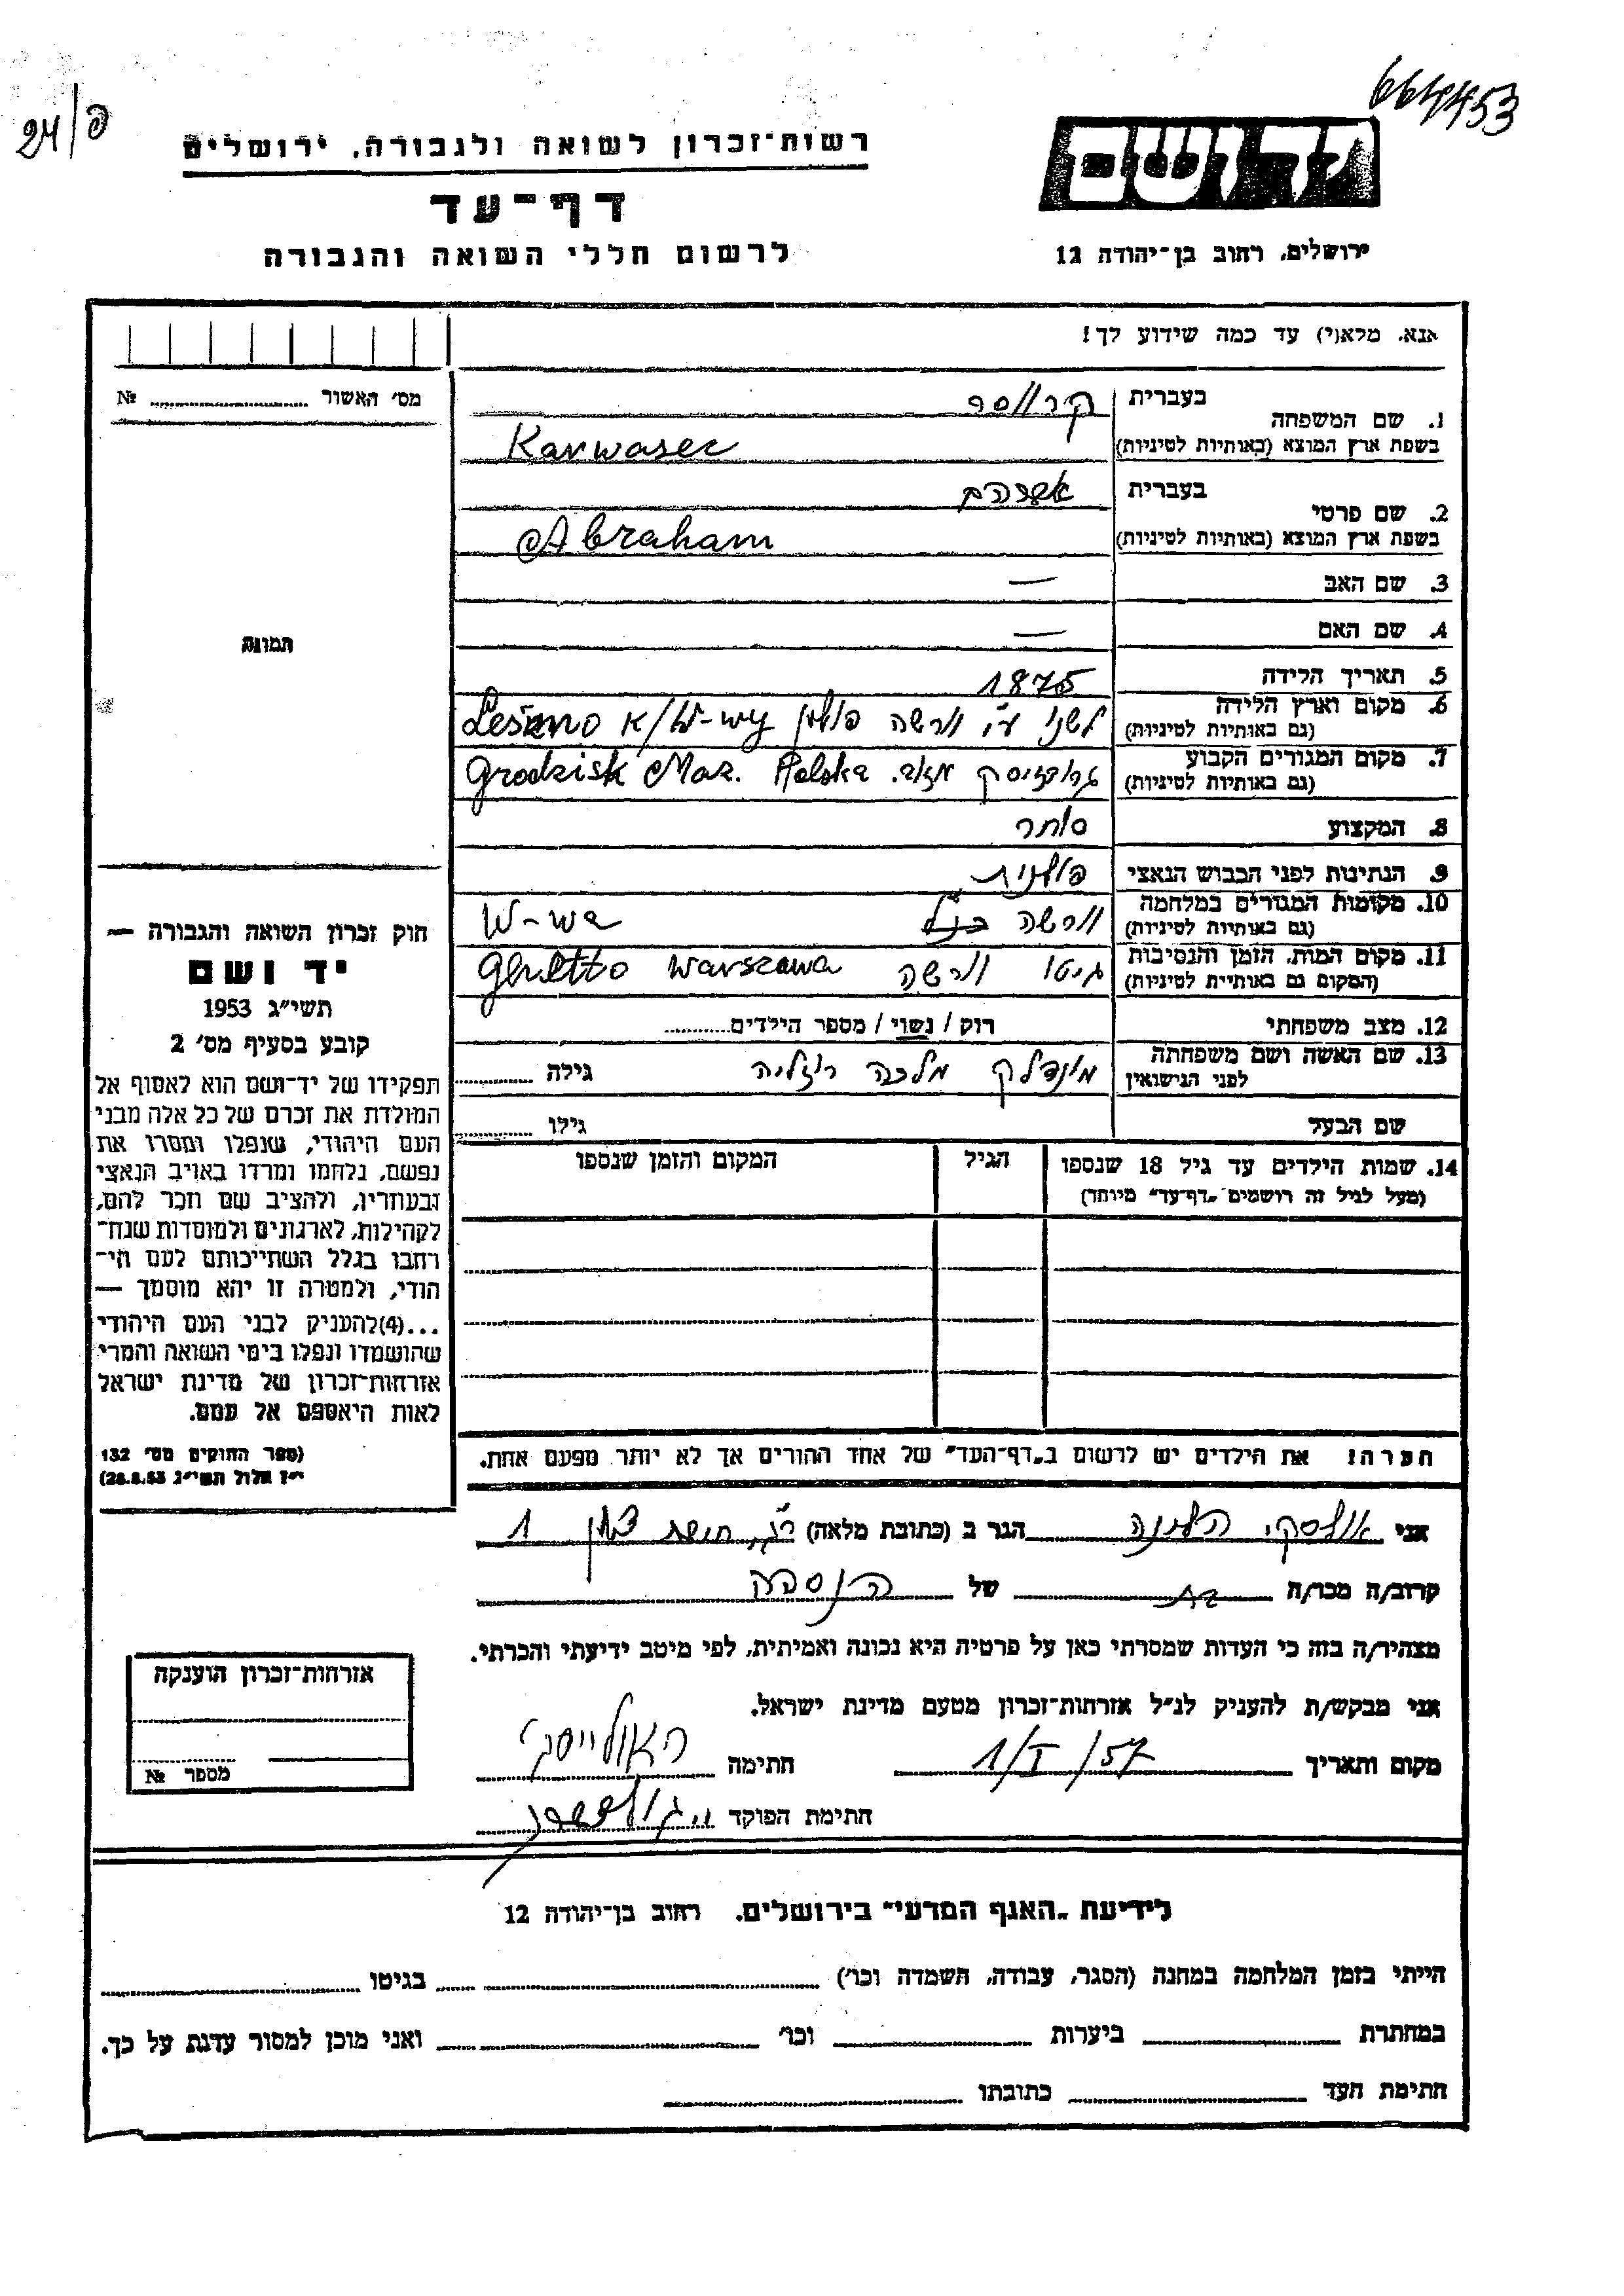 664453
24/פ
יד ושם
רשות־זכרון לשואה ולגבורה, ירושלים
דף־עד
לרשום חללי השואה והגבורה
ירושלים, רחוב בן־יהודה 12
אנא, מלא(י) עד כמה שידוע לך!
מס׳ האשור № ............
1. שם המשפחה בעברית קרווסר
בשפת ארץ המוצא (באותיות לטיניות) Karwaser
2. שם פרטי בעברית אברהם
בשפת ארץ המוצא (באותיות לטיניות) Abraham
3. שם האב —
4. שם האם —
5. תאריך הלידה 1875
6. מקום וארץ הלידה (גם באותיות לטיניות) לשנו ע״י ורשה פולין Lešzno K/W-wy
7. מקום המגורים הקבוע (גם באותיות לטיניות) גרודזיסק מזוב. Grodzisk Maz. Polska
8. המקצוע סוחר
9. הנתינות לפני הכבוש הנאצי פולנית
10. מקומות המגורים במלחמה (גם באותיות לטיניות) ורשה W-wa
11. מקום המות, הזמן והנסיבות (המקום גם באותיית לטיניות) גיטו ורשה Ghetto Warszawa
12. מצב משפחתי רוק / נשוי / מספר הילדים............
13. שם האשה ושם משפחתה לפני הנישואין מינדלק מלכה רוזליה גילה ............
שם הבעל גילו ............
14. שמות הילדים עד גיל 18 שנספו (מעל לגיל זה רושמים „דף־עד״ מיוחד) הגיל המקום והזמן שנספו
הערה! את הילדים יש לרשום ב„דף־העד״ של אחד ההורים אך לא יותר מפעם אחת.
תמונה
חוק זכרון השואה והגבורה —
יד ושם
תשי״ג 1953
קובע בסעיף מס׳ 2
תפקידו של יד־ושם הוא לאסוף אל
המולדת את זכרם של כל אלה מבני
העם היהודי, שנפלו ומסרו את
נפשם, נלחמו ומרדו באויב הנאצי
ובעוזריו, ולהציב שם וזכר להם,
לקהילות, לארגונים ולמוסדות שנח־
רבו בגלל השתייכותם לעם הי־
הודי, ולמטרה זו יהא מוסמך —
...(4)להעניק לבני העם היהודי
שהושמדו ונפלו בימי השואה והמרי
אזרחות־זכרון של מדינת ישראל
לאות היאספם אל עמם.
(ספר החוקים מס׳ 132
י״ז אלול תשי״ג 28.8.53)
אני אולסקי הלינה הגר ב (כתובת מלאה) 1
קרוב/ה מכר/ה בת של הנספה
מצהיר/ה בזה כי העדות שמסרתי כאן על פרטיה היא נכונה ואמיתית, לפי מיטב ידיעתי והכרתי.
אני מבקש/ת להעניק לנ״ל אזרחות־זכרון מטעם מדינת ישראל.
מקום ותאריך 1/I/57 חתימה
חתימת הפוקד
אזרחות־זכרון הוענקה
מספר №
לידיעת „האגף המדעי״ בירושלים, רחוב בן־יהודה 12
הייתי בזמן המלחמה במחנה (הסגר, עבודה, השמדה וכר׳) ............ בגיטו ............
במחתרת ............ ביערות ............ וכר׳ ............ ואני מוכן למסור עדות על כך.
חתימת העד ............ כתובתו ............